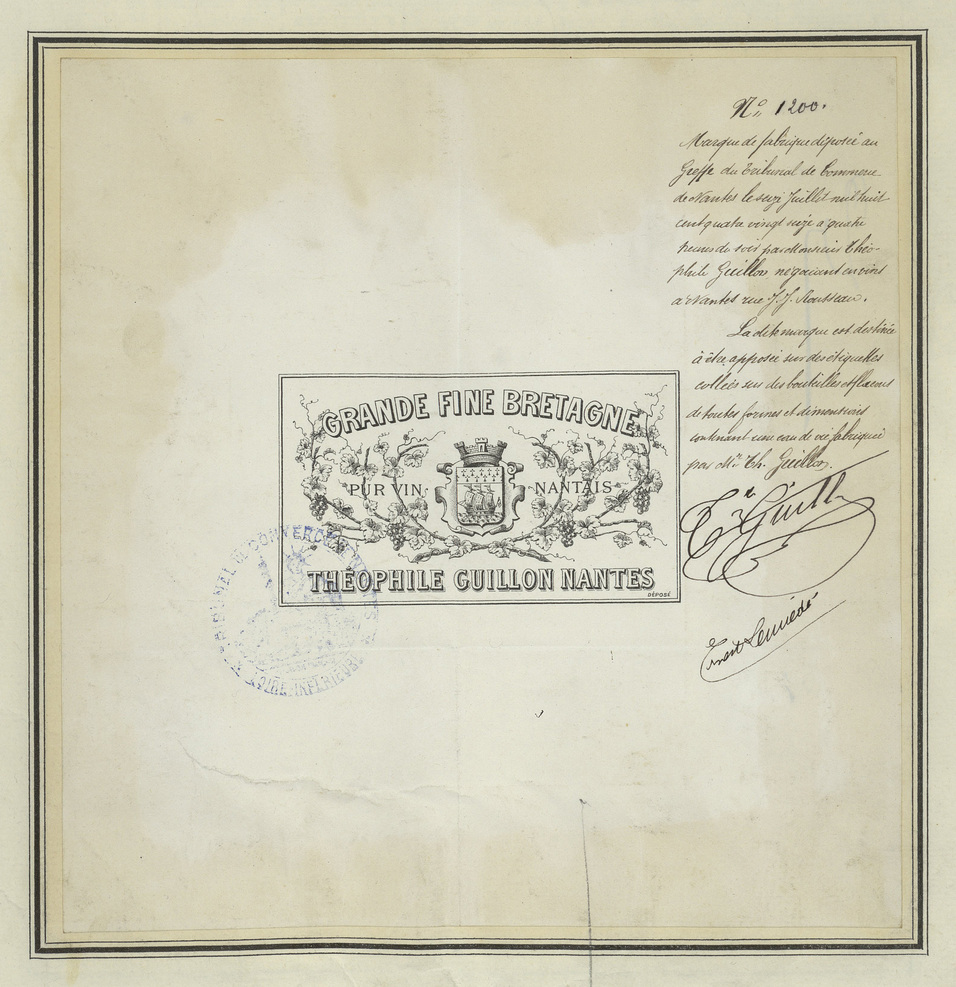 No 1200.
Marque de fabrique déposée au
Greffe du Tribunal de Commerce
de Nantes le seize Juillet mil huit
cent quatre vingt seize à quatre
heures du soir par Monsieur Théo-
phile Guillon négociant en vins
à Nantes rue J. J. Rousseau.
La dite marque est destinée
à être apposée sur des étiquettes
collées sur des bouteilles et flacons
de toutes formes et dimensions
contenant une eau de vie fabriquée
par Mr Th. Guillon.
GRANDE FINE BRETAGNE
PUR VIN NANTAIS
THÉOPHILE GUILLON NANTES
DÉPOSÉ
Th Guillon
TRIBUNAL DE COMMERCE DE NANTES
LOIRE-INFÉRIEURE